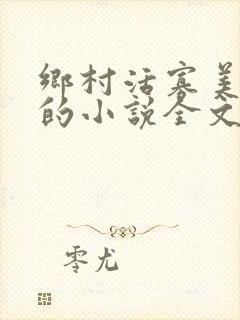 鄉村活寡美
的小說全文
零尤